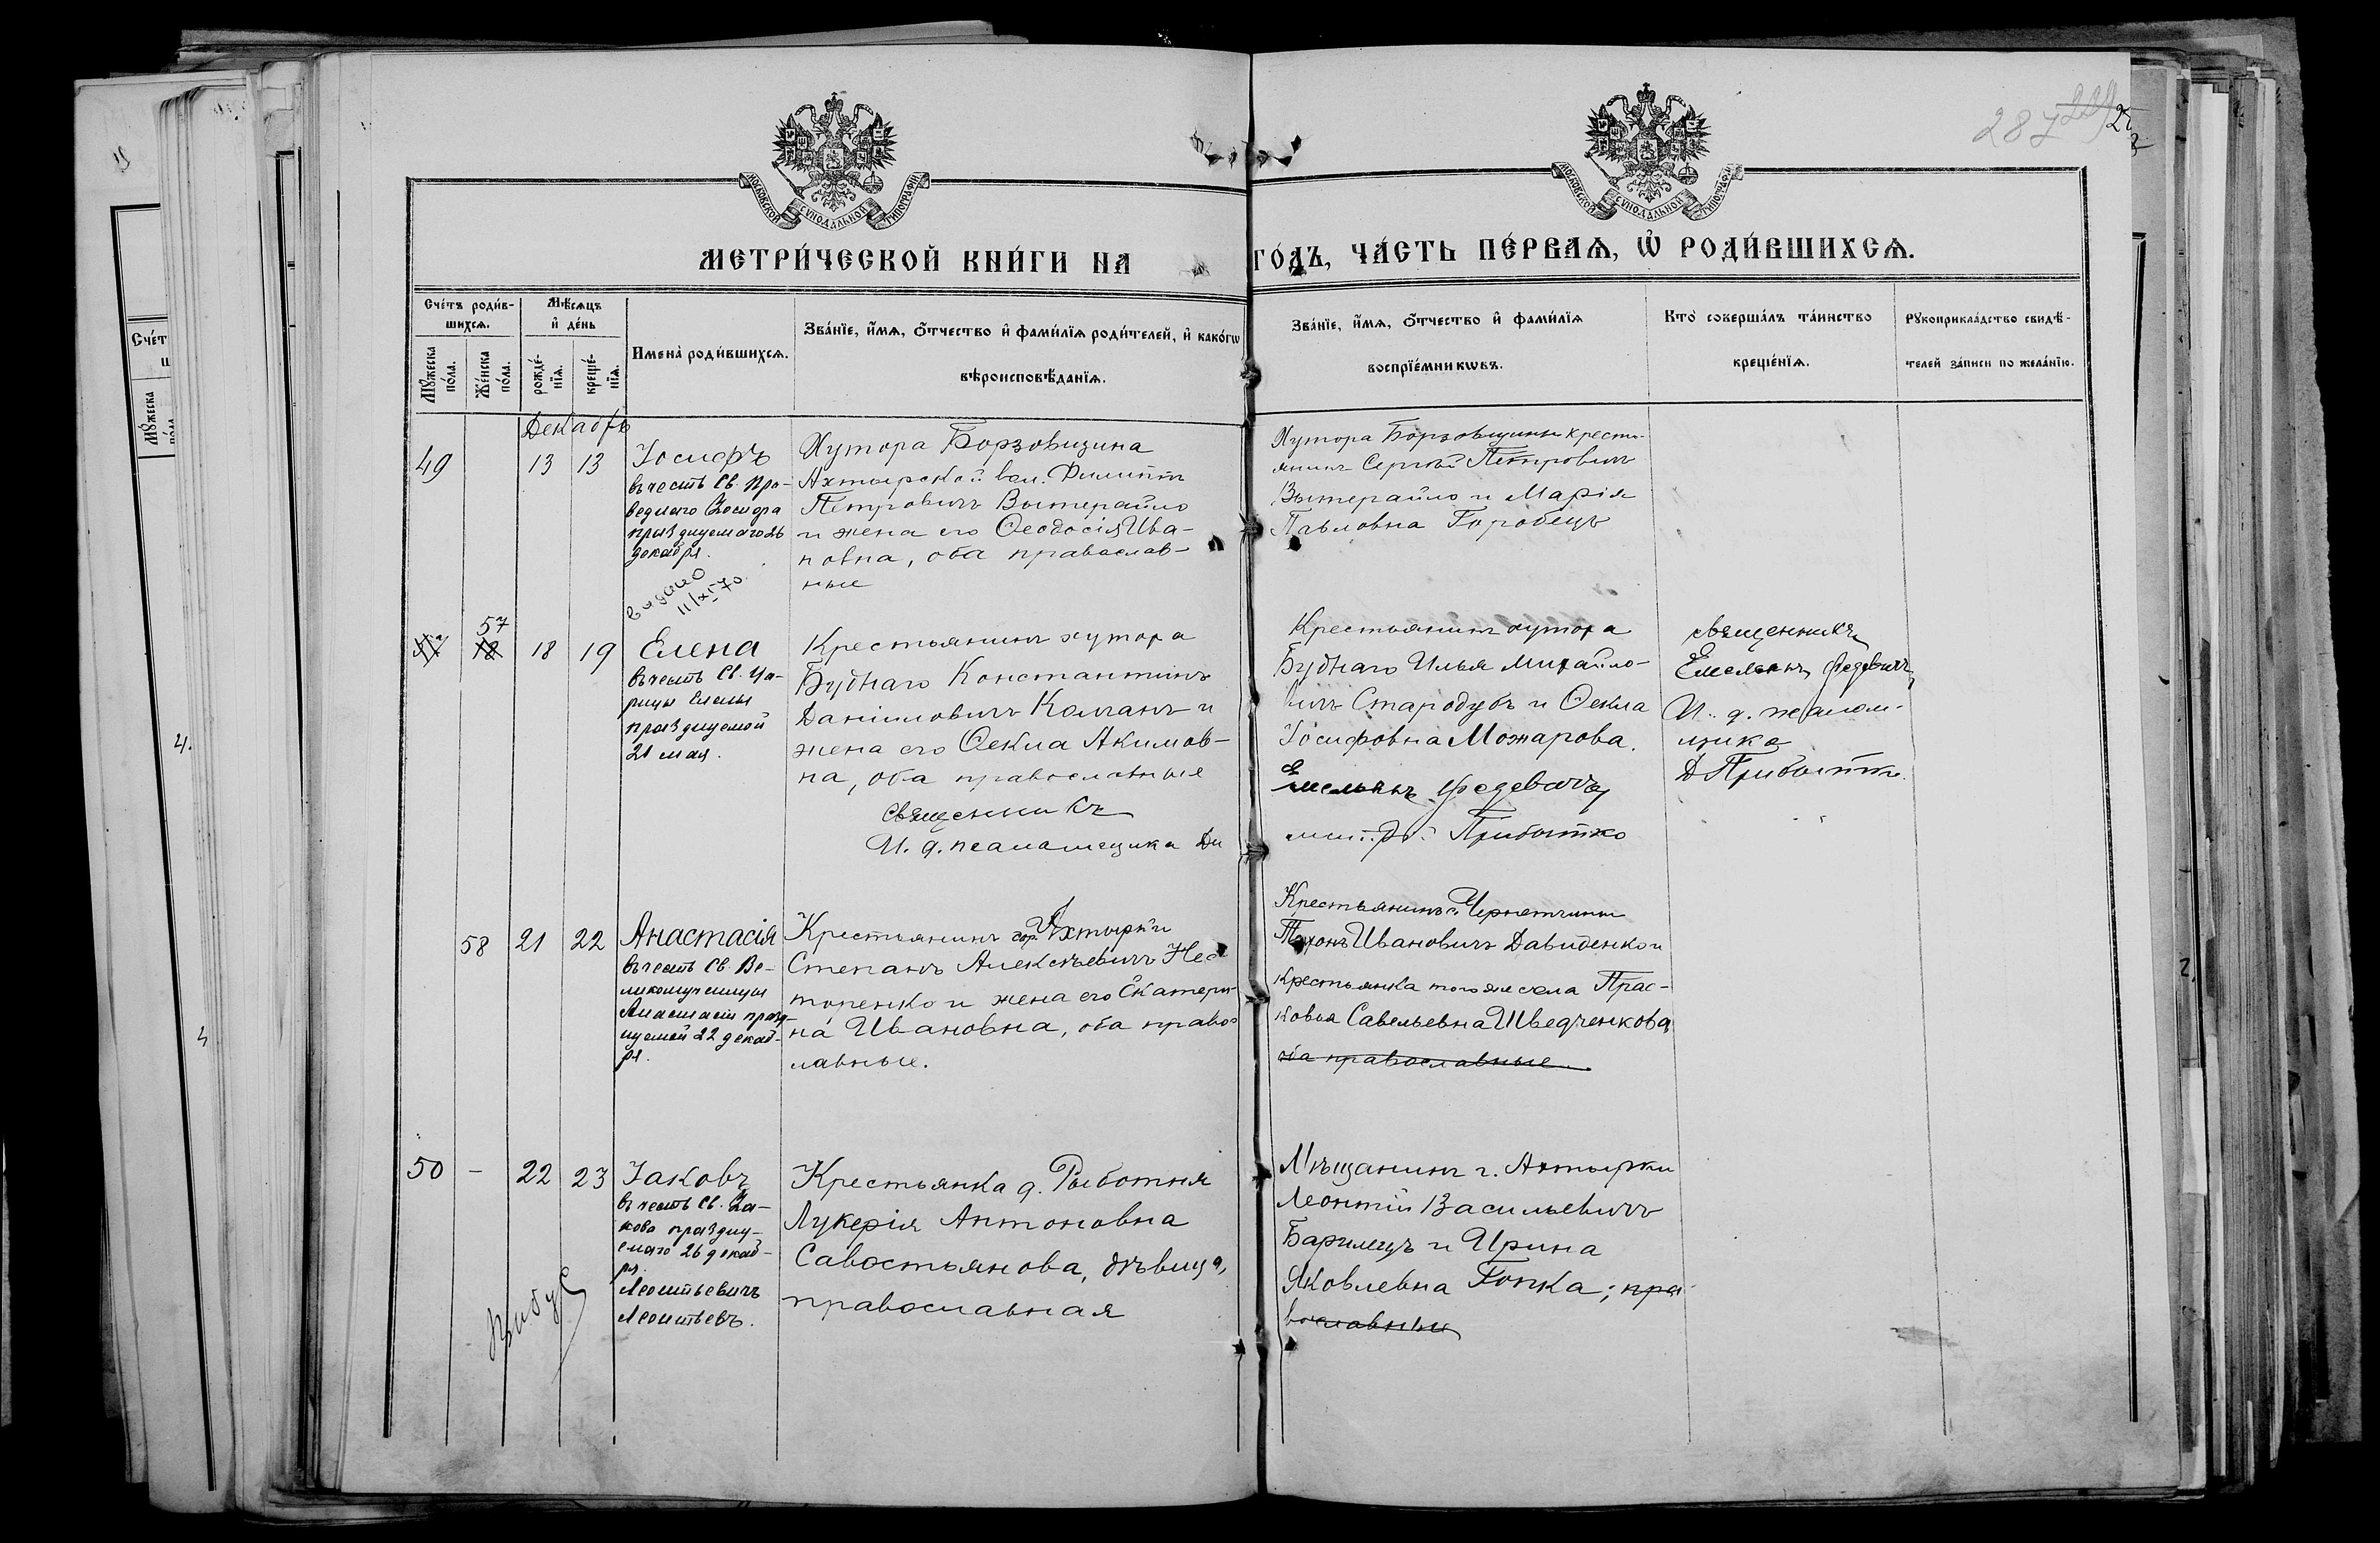 287
МОСКОВСКОЙ СѴНОДАЛЬНОЙ ТИПОГРАФІИ
МОСКОВСКОЙ СѴНОДАЛЬНОЙ ТИПОГРАФІИ
МЕТРИ́ЧЕСКОЙ КНИ́ГИ НА
ГО́ДЪ, ЧА́СТЬ ПЕ́РВАѦ, Ѡ҆ РОДИ́ВШИХСѦ.
Сче́тъ роди́в-
шихсѧ.
Мꙋ́жеска
по́ла.
Же́нска
по́ла.
Мѣ́сѧцъ
и҆ де́нь
рожде́-
нїѧ.
креще́-
нїѧ.
Имена̀ роди́вшихсѧ.
Зва́нїе, и҆́мѧ, ѻ҆́тчество и҆ фами́лїѧ роди́телей, и҆ како́гѡ
вѣроисповѣ́данїѧ.
Зва́нїе, и҆́мѧ, ѻ҆́тчество и҆ фами́лїѧ
воспрїе́мникѡвъ.
Кто̀ соверша́лъ та́инство
креще́нїѧ.
Рꙋкоприкла́дство свидѣ́-
телей за́писи по жела́нїю.
Декабрь
49
13
13
Іосифъ
въ честь Св. Пра-
веднаго Іосифа
празднуемаго 26
декабря.
видано
11/XI 70
Хутора Борзовщина
Ахтырской вол. Филиппъ
Петровичъ Вытерайло
и жена его Ѳеодосія Ива-
новна, оба православ-
ные
Хутора Борзовщины кресть-
янинъ Сергѣй Петровичъ
Вытерайло и Марія
Павловна Горобецъ
57
18
19
Елена
въ честь Св. Ца-
рицы Елены
празднуемой
21 мая.
Крестьянинъ хутора
Буднаго Константинъ
Даниловичъ Колчанъ и
жена его Ѳекла Акимов-
на, оба православные
Священникъ
И. д. псаломщика Ди
Крестьянинъ хутора
Буднаго Илья Михайло-
вичъ Стародубъ и Ѳекла
Іосифовна Можарова.
Емельянъ Федевичъ
Прибытко
священникъ
Емельянъ Федевичъ
И. д. псалом-
щика
Д Прибытк
58
21
22
Анастасія
въ честь Св. Ве-
ликомученицы
Анастасіи празд-
нуемой 22 декаб-
ря.
Крестьянинъ гор. Ахтырки
Степанъ Алексѣевичъ Нес
торенко и жена его Екатери-
на Ивановна, оба право-
лавные.
Крестьянинъ с. Чернетчины
Тихонъ Ивановичъ Давиденко и
крестьянка того же села Прас-
ковья Савельевна Шведченкова
оба православные
50
-
22
23
Іаковъ
въ честь Св. Іа-
кова праздну-
емаго 26 декаб-
ря.
Леонтьевичъ
Леонтьевъ.
Крестьянка д. Рыботня
Лукерія Антоновна
Савостьянова, дѣвица,
православная
Мѣщанинъ г. Ахтырки
Леонтій Васильевичъ
Барилецъ и Ирина
Яковлевна Гопка; пра
вославные